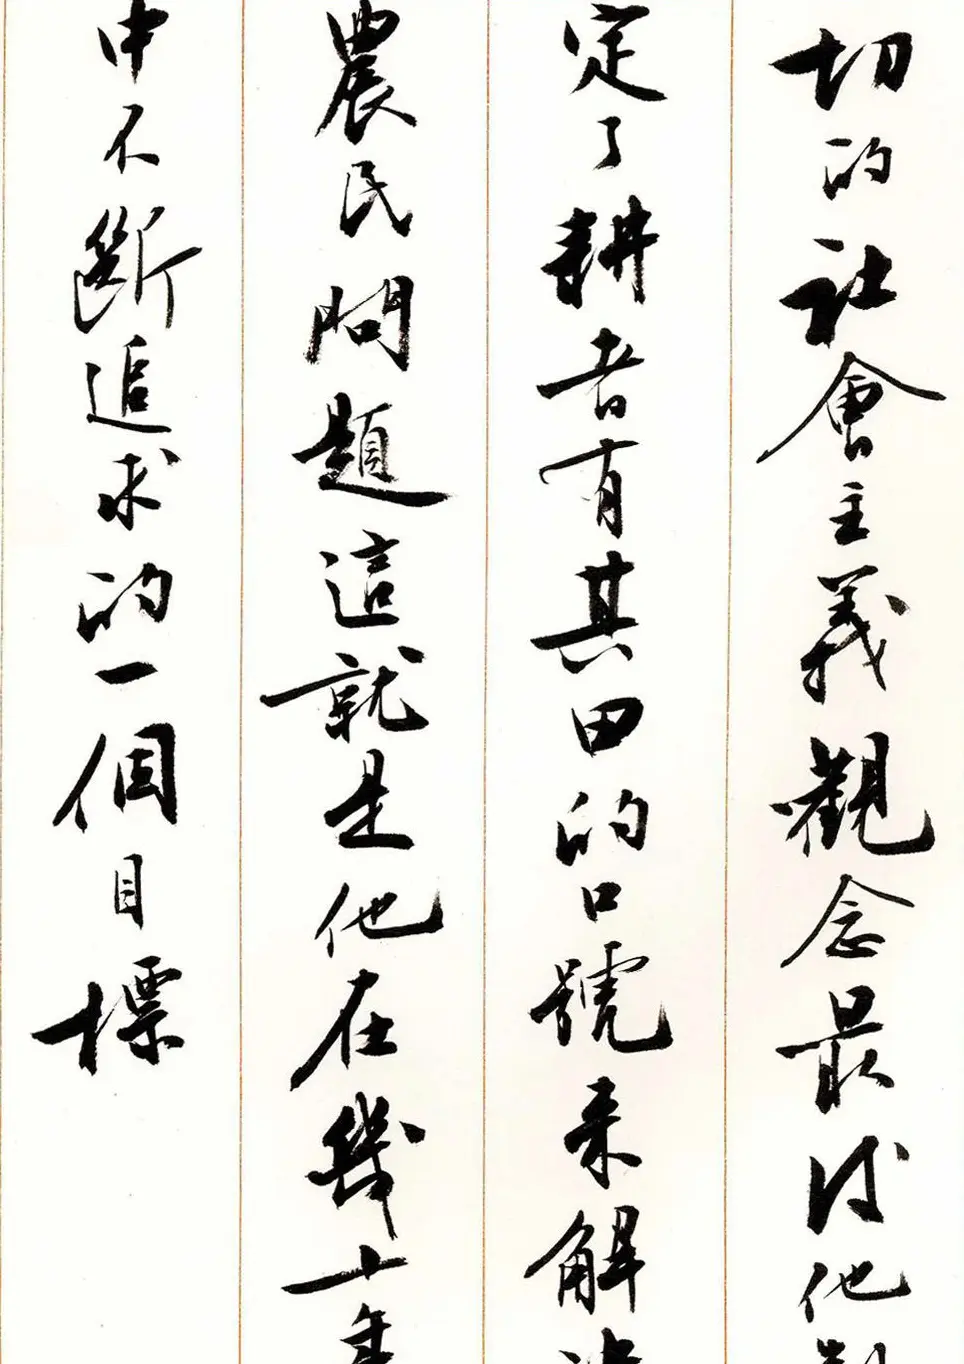 切的社會主義觀念最後他制
定了耕者有其田的口號来解決
農民問題這就是他在幾十年
中不斷追求的一個目標